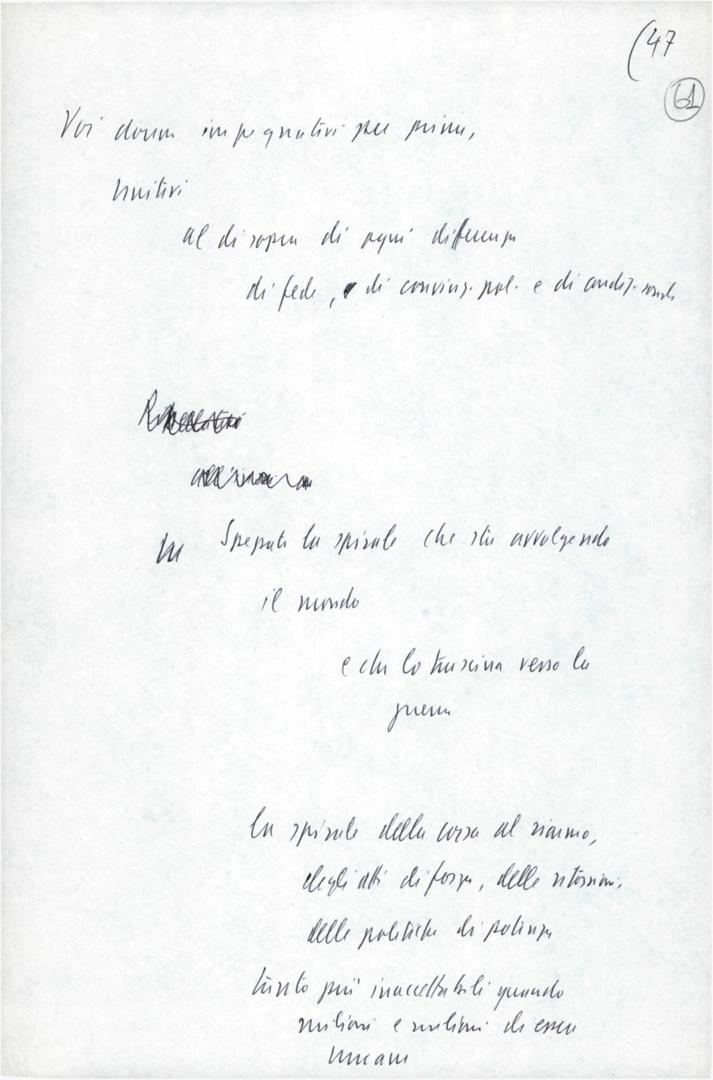 (47
61
Voi donne impegnatevi per prime,
Unitevi
al di sopra di ogni differenza
di fede, di convinz. pol. e di condiz. sociale
Spezzate la spirale che sta avvolgendo
il mondo
e che lo trascina verso la
guerra
La spirale della corsa al riarmo,
degli atti di forza, delle ritorsioni,
delle politiche di potenza
tanto più inaccettabili quando
milioni e milioni di esseri
umani